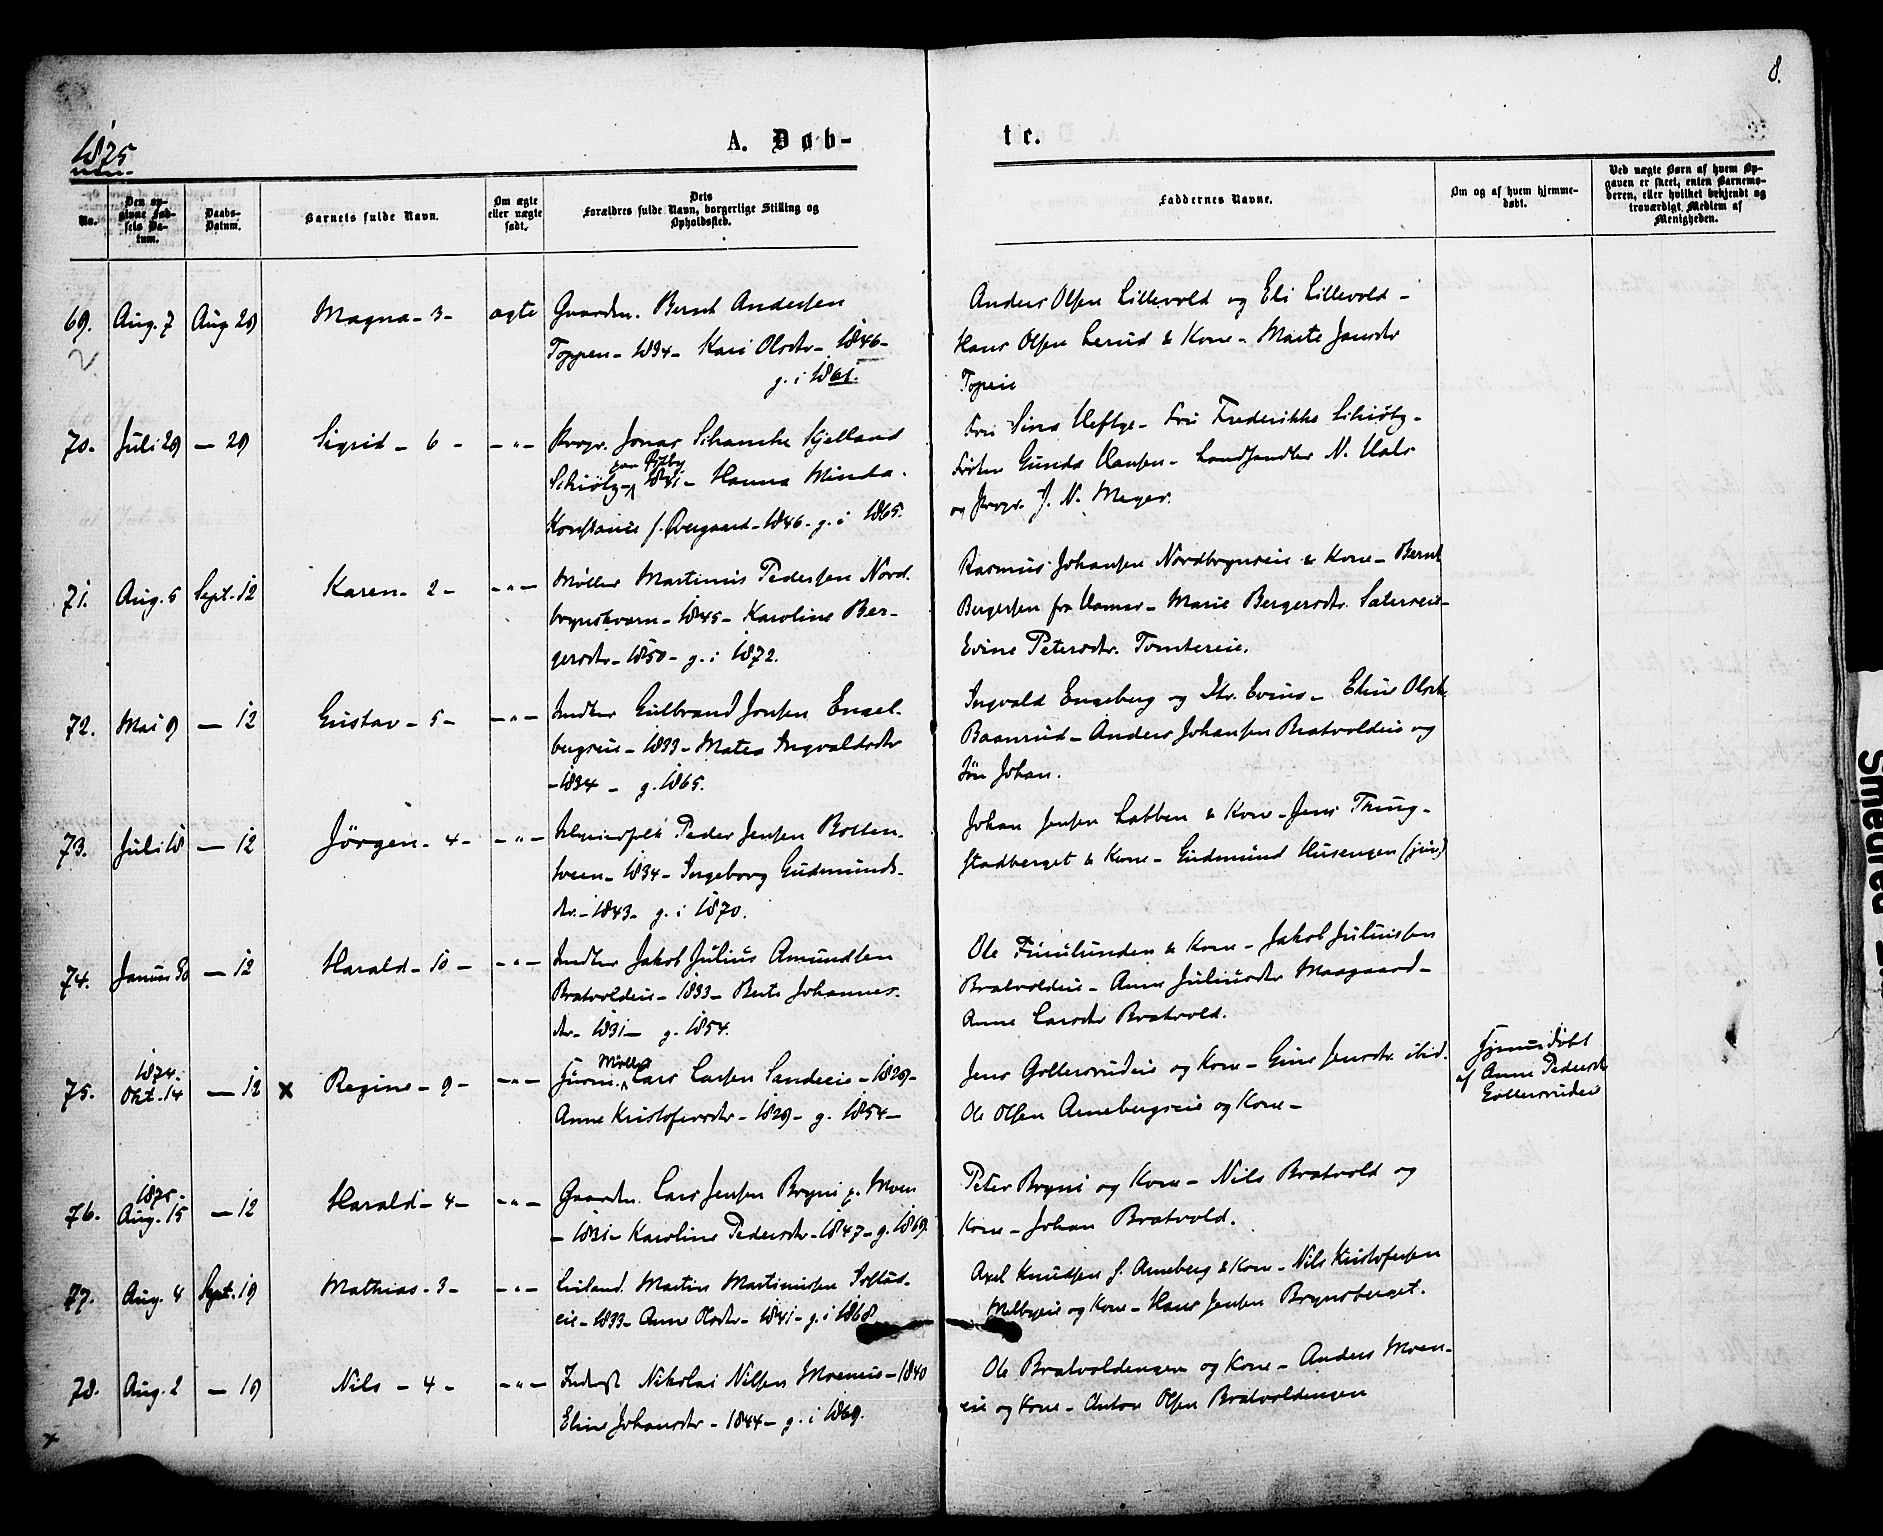 8.
1875
A. Døb-
te.
No.
Den op-
givne Fød-
sels Da-
tum.
Daabs-
Datum.
Barnets fulde Navn.
Om ægte
eller uægte
født.
Dets
Forældres fulde Navn, borgerlige Stilling og
Opholdssted.
Faddernes Navne.
Om og af hvem hjemme-
døbt.
Ved uægte Børn af hvem Op-
gaven er skeet, enten Barnemo-
deren, eller hvilket bekjendt og
troværdigt Medlem af
Menigheden.
69. Aug. 7 Aug 29 Magna - 3 - ægte Gaardm. Bernt Andersen
2
Toppen - 1834 - Kari Olsdtr - 1846 -
g. i 1865.
Anders Olsen Lillevold og Eli Lillevold -
Hans Olsen Lerud & Kone - Marte Jansdtr
Topeie
70. Juli 29 - 29 Sigrid - 6 - - " - Propr. Jonas Schanche Kjelland
Schiötz - 1831 - Hanna Minda
Konstance f. Overgaard - 1846 - g. i 1865.
Fru Sina Heftye - Fru Frederikke Schiötz -
Frøken Gunda Hansen - Landhandler N. Hals
og Propr. J. N. Meyer.
71. Aug. 5 Sept. 12 Karen - 2 - - " - Møller Martinus Pedersen Nord-
brynskværn - 1845 - Karoline Ber-
gersdtr - 1850 - g. i 1872.
Rasmus Johansen Nordbrynseie & Kone - Bernt
Bergersen fra Hamar - Marie Bergersdtr. Sætereie -
Evine Petersdtr. Tomtereie.
72. Mai 9 - 12 Gustav - 5 - - " - Indster Gulbrand Jonsen Engel-
bergseie - 1833 - Mathea Ingvaldsdtr
- 1834 - g. 1865.
Ingvald Engeberg og Dtr. Evine - Eline Olsdtr
Baanrud - Anders Johansen Bratvoldeie og
Søn Johan.
73. Juli 18 - 12 Jörgen - 4 - - " - Peder Jensen Botten-
tveen - 1834 - Ingeborg Gudmunds-
dtr. - 1843 - g. i 1870.
Johan Jensen Labben & Kone - Jens Trug-
stadberget & Kone - Gudmund Husengen (jun)
74. Januar 30 - 12 Harald - 10 - - " - Indster Jakob Julius Amundsen
Bratvoldeie - 1833 - Berte Johannes-
dtr - 1831 - g. 1854.
Ole Finlunden & Kone - Jakob Juliussen
Bratvoldeie - Anne Juliusdtr Maagaard -
Anne Larsdtr Bratvold.
75. 1874.
Okt. 14 - 12 x Regine - 9 - - " - Møller Lars Larsen Sandeeie - 1829 -
Anne Kristofersdtr - 1829 - g. 1854 -
Jens Gollersrudeie og Kone - Gine Jensdtr. ibid.
Ole Olsen Arnebergseie og Kone -
Hjemmedöbt
af Anne Pedersdtr
Gollersrudeie
76. 1875.
Aug. 15 - 12 Harald - 4 - - " - Gaardm. Lars Jensen Bryni p. Moen
- 1831 - Karoline Pedersdtr - 1847 - g. 1869.
Peter Bryni og Kone - Nils Bratvold og
Kone - Johan Bratvold.
77. Aug. 4 Sept. 19 Mathias - 3 - - " - Martin Martinusen
eie - 1833 - Anne Olsdtr - 1841 - g. i 1868
Axel Knudsen f. Arneberg & Kone - Nils Kristofersen
Melbyeie og Kone - Hans Jensen Brynsberget.
78. Aug. 2 - 19 Nils - 4 - - " - Inderst Nikolai Nilsen Moeneie - 1840
Eline Johansdtr - 1844 - g. i 1869.
Ole Bratvoldengen og Kone - Anders Moen-
eie og Kone - Anton Olsen Bratvoldengen
x